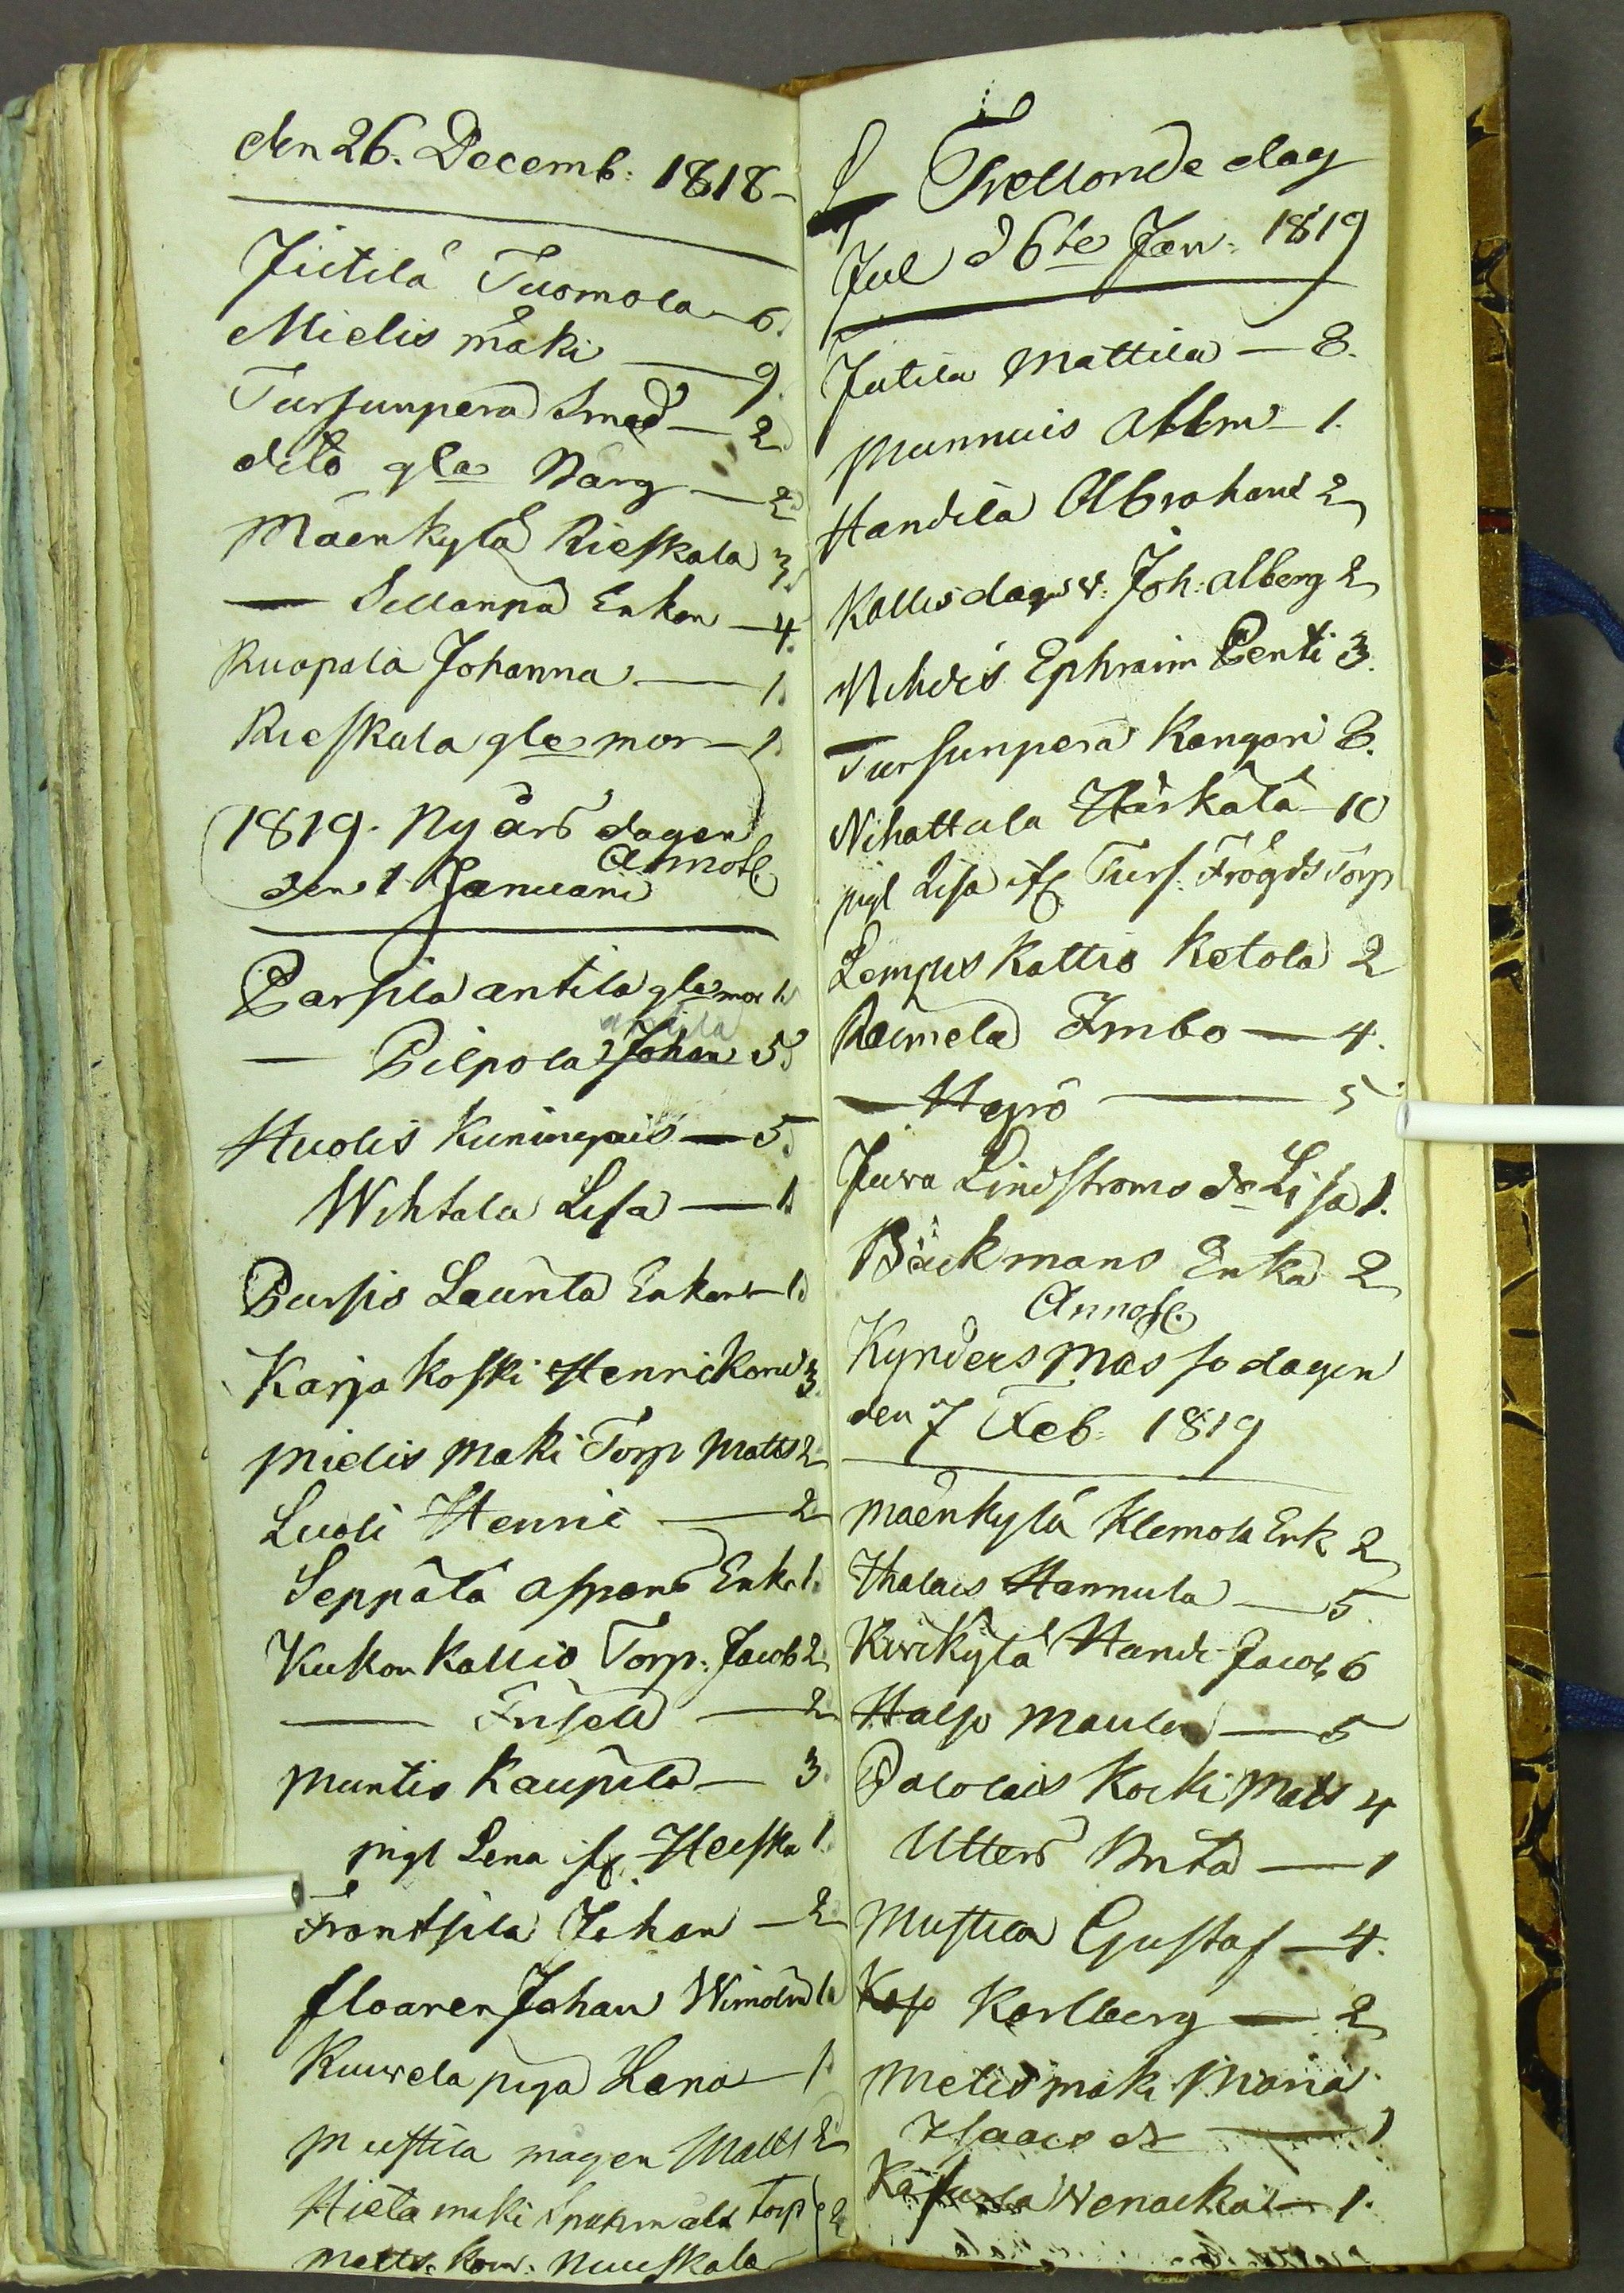 den 26. Decemb: 1818-
Jutila Tuomola - 6.
Mielis mäki — 9.
Tursunperä Smed — 2
dito gla Närg — 2
Mäenkylä Rieskala 3.
— Sillanpä Enkan — 4.
Ruopala Johanna — 1.
Rieskala gla mor — 1.
1819. Ny års dagen
Annot
den 1 Januari
Parsila antila gla mor 1.
— Pilpola Johan 5.
Huolis Kuningais — 5.
Wihtala Lisa — 1.
Pursis Launta Enkan 1.
Karja koski Henrikson 3.
Mielis Maki Torp Matts 2
Luoli Henric — 2
Seppälä Enk. 1.
Kukon Kallio Torp: Jacob 2
— — 2
Muntis Kaupila — 3.
pigl Lena Heiska 1.
Frantsila Johan — 2
Johan 1.
Kuuvela piga Lena — 1.
Mustila mågen Matts 2
Hieta maki torp 2
Matts: Nuuskala
Trettonde dag
Jul d 6te Jan: 1819
Jutila Mattila — 8.
Mannais — 1.
Handila Abraham 2
Kallis dagsv: Joh: alberg 2
Ephraim Penti 3.
Tursunperä Kangari 8.
Nihattula Härkälä — 10
pigl Lisa Turs: Frögds Torp
Lempus Kattis Ketola 2
Raimela Imbo — 4.
— — 5
Juva Lindströms dr Lisa 1.
Bäckmans Enka 2
Annot
Kynders mässo dagen
den 7 Feb: 1819
Mäenkylä Klemola Enk 2
Ihalais Hannula — 5.
Kirckylä Handi Jacob 6
Halso Maula — 5
Palolais Koski Mats 4
Utters Brita — 1
Mustila Gustaf — 4.
Karlberg — 2
Mielis mäki Maria
Isaacs dr — 1
— 1.